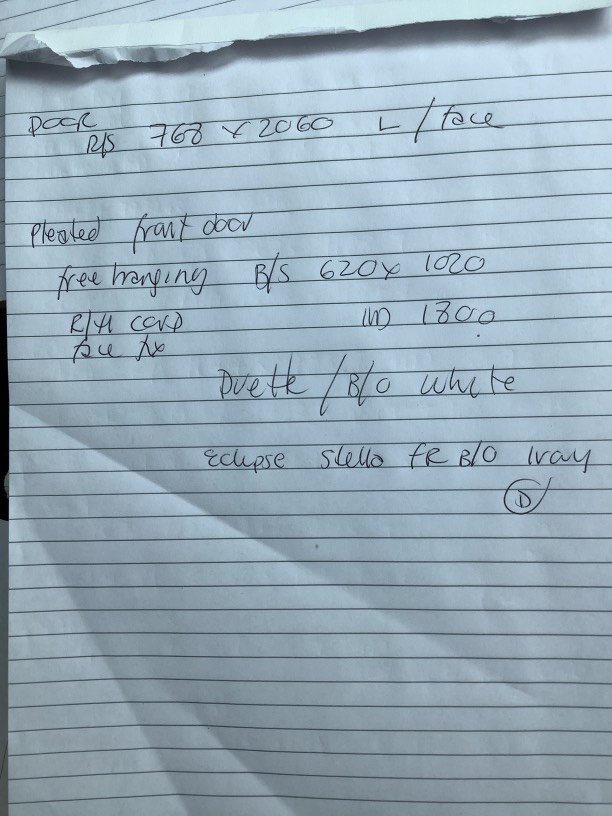 DOOR
R/S 768 x 2060 L / face
Pleated front door
free hanging B/S 620 x 1020
R/H CORD IID 1800
face fix
Duette / B/O white
Eclipse stello FR B/O Ivory
D